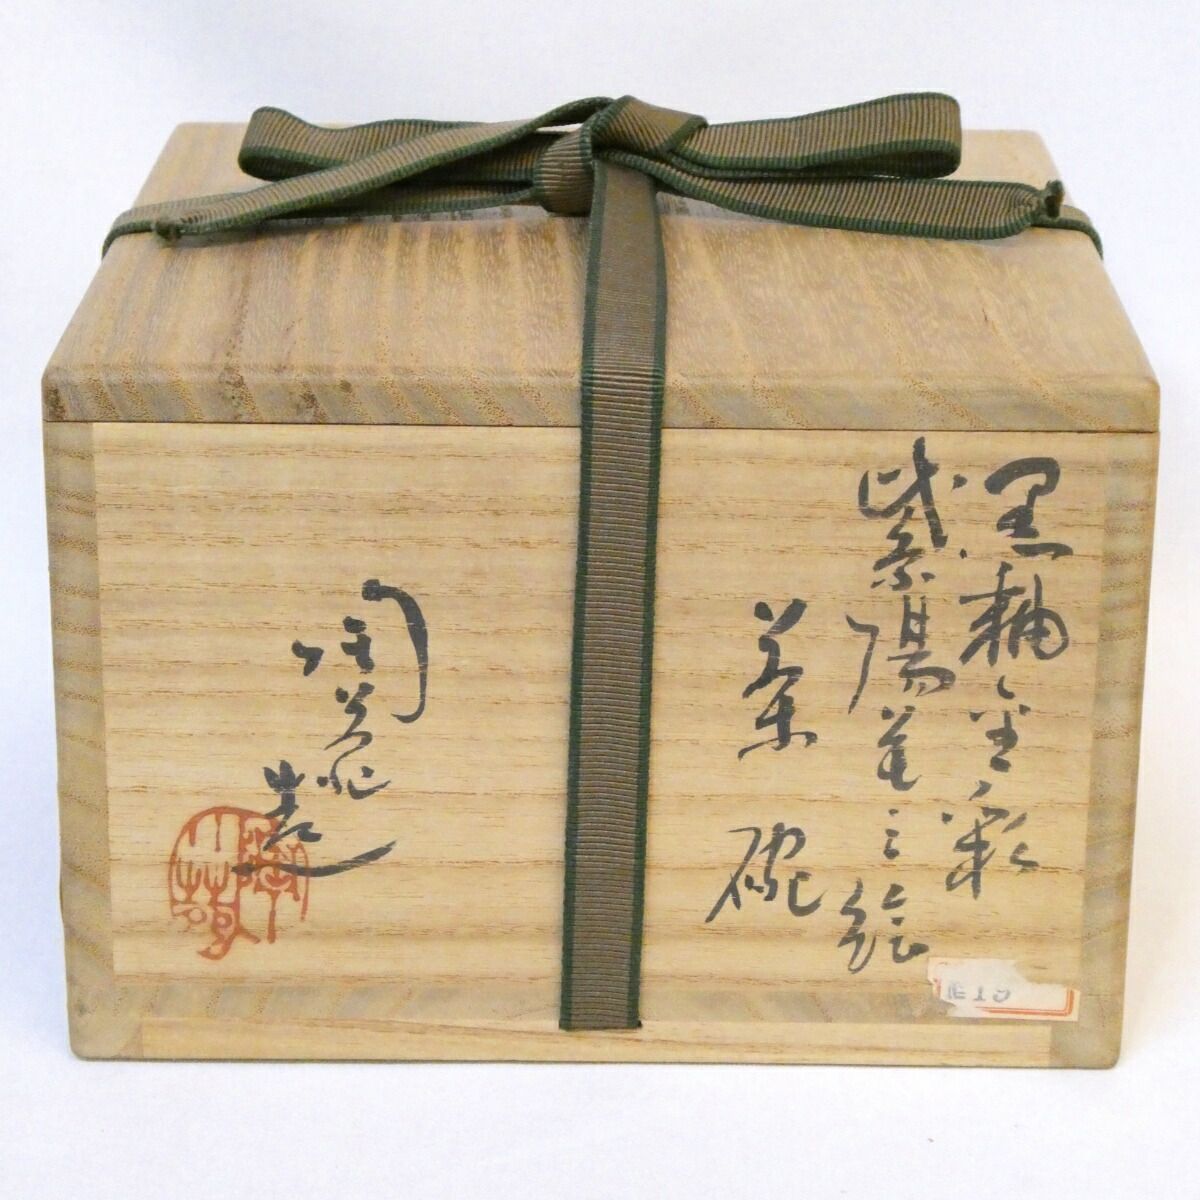 黒釉金彩
紫陽花之絵
茶碗
造
19